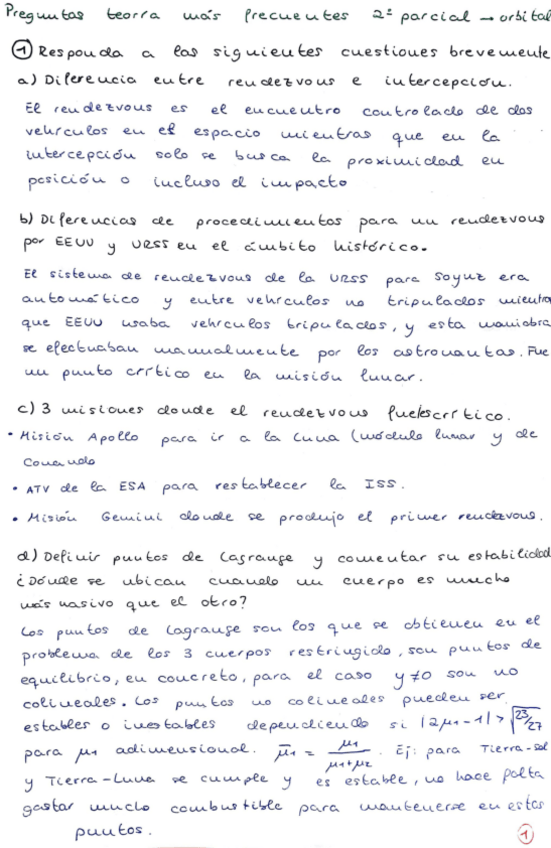 Preguntas teoría más frecuentes 2º parcial → orbital
① Responda a las siguientes cuestiones brevemente
a) Diferencia entre rendezvous e intercepción.
El rendezvous es el encuentro controlado de dos
vehículos en el espacio mientras que en la
intercepción solo se busca la proximidad en
posición o incluso el impacto
b) Diferencias de procedimientos para un rendezvous
por EEUU y URSS en el ámbito histórico.
El sistema de rendezvous de la URSS para Soyuz era
automático y entre vehículos no tripulados mientra
que EEUU usaba vehículos tripulados, y esta maniobra
se efectuaban manualmente por los astronautas. Fue
un punto crítico en la misión lunar.
c) 3 misiones donde el rendezvous fue/es crítico.
• Misión Apollo para ir a la Luna (módulo lunar y de
Comando
• ATV de la ESA para restablecer la ISS.
• Misión Gemini donde se produjo el primer rendezvous.
d) Definir puntos de Lagrange y comentar su estabilidad
¿Dónde se ubican cuando un cuerpo es mucho
más masivo que el otro?
Los puntos de Lagrange son los que se obtienen en el
problema de los 3 cuerpos restringido, son puntos de
equilibrio, en concreto, para el caso y≠0 son no
colineales. Los puntos no colineales pueden ser
estables o inestables dependiendo si |2μ1-1| > √23/27
para μ1 adimensional. μ̄1 = μ1/(μ1+μ2). Ej: para Tierra-sol
y Tierra-Luna se cumple y es estable, no hace falta
gastar mucho combustible para mantenerse en estos
puntos.
①